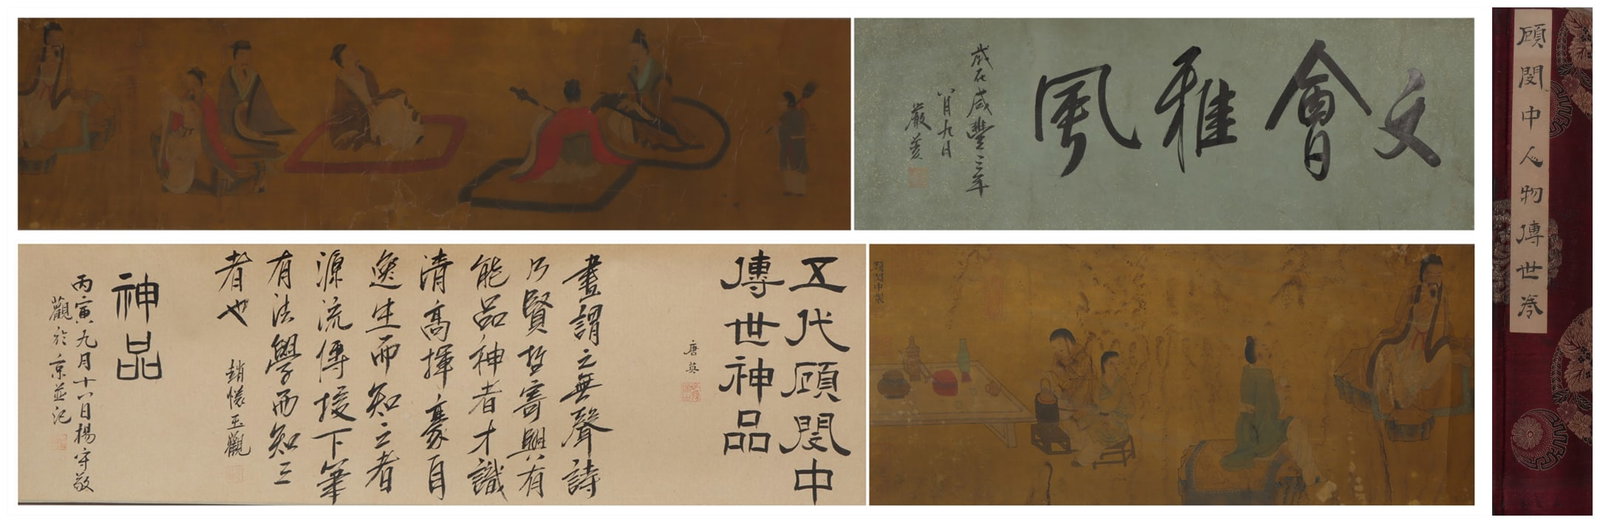 文會雅風
歲在咸豐三年
八月九日
顧閎中人物傳世卷
五代顧閎中
傳世神品
唐英
畫謂之無聲詩
乃賢哲寄興有
能品神者才識
清高揮豪自
逸生而知之者
源流傳授下筆
有法學而知之
者也
趙懷玉觀
神品
丙寅九月十六日楊守敬
觀於京並記